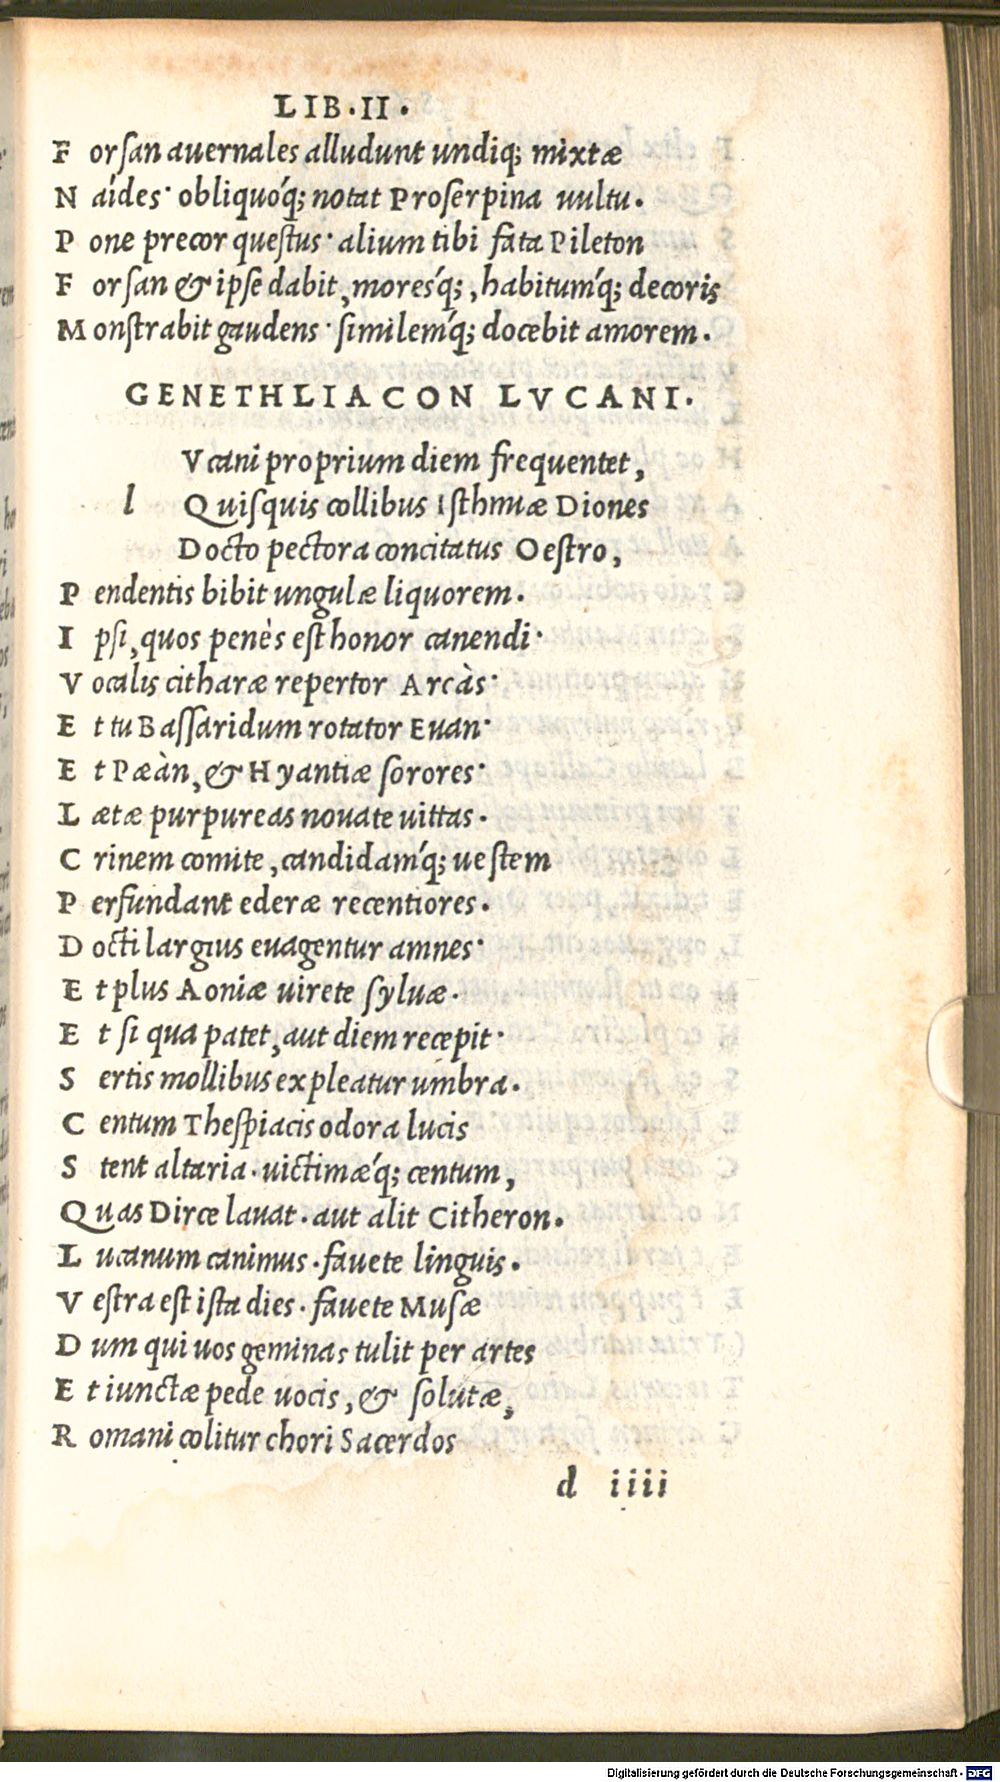 LIB.II.
F orsan auernales alludunt undiq; mixtæ
N aides· obliquóq; notat Proserpina uultu.
P one precor questus· alium tibi fata Pileton
F orsan & ipse dabit, morésq;, habitúmq; decoris
M onstrabit gaudens· similémq; docebit amorem.
GENETHLIACON LVCANI.
Vcani proprium diem frequentet,
l Quisquis collibus Isthmiæ Diones
Docto pectora concitatus Oestro,
P endentis bibit ungulæ liquorem.
I psi, quos penès est honor canendi·
V ocalis citharæ repertor Arcàs·
E t tu Bassaridum rotator Euan·
E t Pæàn, & Hyantiæ sorores·
L ætæ purpureas nouate uittas.
C rinem comite, candidámq; uestem
P erfundant ederæ recentiores.
D octi largius euagentur amnes·
E t plus Aoniæ uirete syluæ.
E t si qua patet, aut diem recepit·
S ertis mollibus expleatur umbra.
C entum Thespiacis odora lucis
S tent altaria. uictimæq́; centum,
Quas Dirce lauat. aut alit Citheron.
L ucanum canimus. fauete linguis.
V estra est ista dies. fauete Musæ
D um qui uos geminas tulit per artes
E t iunctæ pede uocis, & solutæ,
R omani colitur chori Sacerdos
d iiii
Digitalisierung gefördert durch die Deutsche Forschungsgemeinschaft - DFG